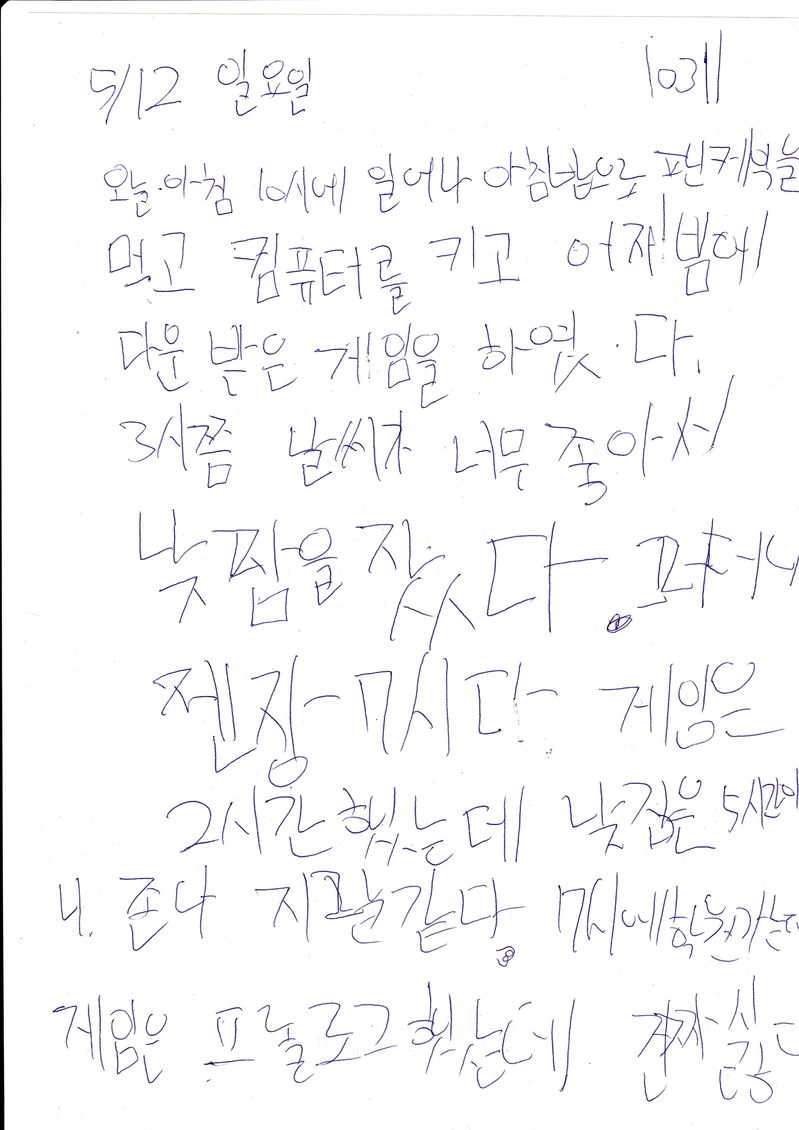 5/12 일요일 103ㅔ
오늘.아침 10시에 일어나 아침밥으로 팬케익을
먹고 컴퓨터를 키고 어재밤에
다운 받은 게임을 하였.다.
3시쯤 날씨가 너무 좋아서
낮잠을 잤다.
젠장 7시다 게임은
2시간했는데 낮잠은 5시간이
네. 존나 같다. 7시에 학원가는데
게임은 프롤로그했는데 진짜